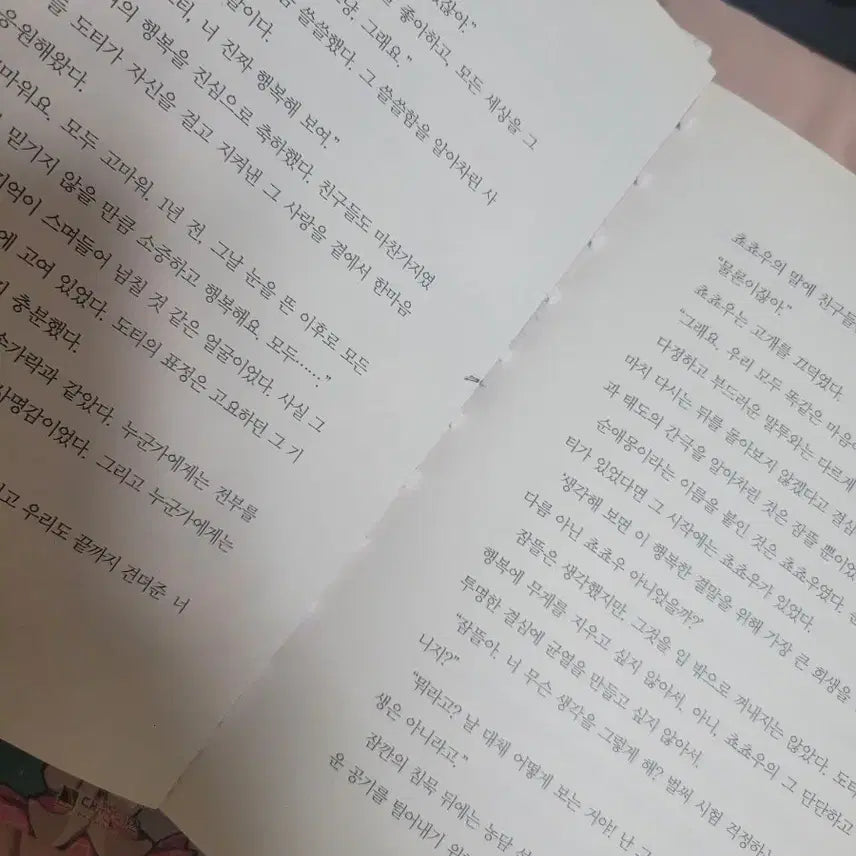 괜찮아."
그래요."
좋아하고, 모든 세상을 그
쓸쓸했다. 그 쓸쓸함을 알아차린 사
람이다.
너 진짜 행복해 보여."
행복을 진심으로 축하했다. 친구들도 마찬가지였
도티가 자신을 걸고 지켜낸 그 사랑을 곁에서 한마음
응원해왔다.
모두 고마워. 1년 전, 그날 눈을 뜬 이후로 모든
믿기지 않을 만큼 소중하고 행복해요. 모두……."
스며들어 넘칠 것 같은 얼굴이었다. 사실 그
에 고여 있었다. 도티의 표정은 고요하던 그 기
충분했다.
손가락과 같았다. 누군가에게는 전부를
사명감이었다. 그리고 누군가에게는
고 우리도 끝까지 견뎌준 너
쵸쵸우의 말에 친구들
"물론이잖아."
쵸쵸우는 고개를 끄덕였다.
"그래요. 우리 모두 똑같은 마음이
다정하고 부드러운 말투와는 다르게
마치 다시는 뒤를 돌아보지 않겠다고 결심
과 태도의 간극을 알아차린 것은 잠뜰 뿐이었
순애몽이라는 이름을 붙인 것은 쵸쵸우였다.
티가 있었다면 그 시작에는 쵸쵸우가 있었다.
'생각해 보면 이 행복한 결말을 위해 가장 큰 희생을
다름 아닌 쵸쵸우 아니었을까?'
잠뜰은 생각했지만, 그것을 입 밖으로 꺼내지는 않았다. 도티
행복에 무게를 지우고 싶지 않아서. 아니, 쵸쵸우의 그 단단하고
투명한 결심에 균열을 만들고 싶지 않아서.
"잠뜰아. 너 무슨 생각을 그렇게 해? 벌써 시험 걱정하는
니지?"
"뭐라고? 날 대체 어떻게 보는 거야! 난 그
생은 아니라고."
잠깐의 침묵 뒤에는 농담
운 공기를 털어내기